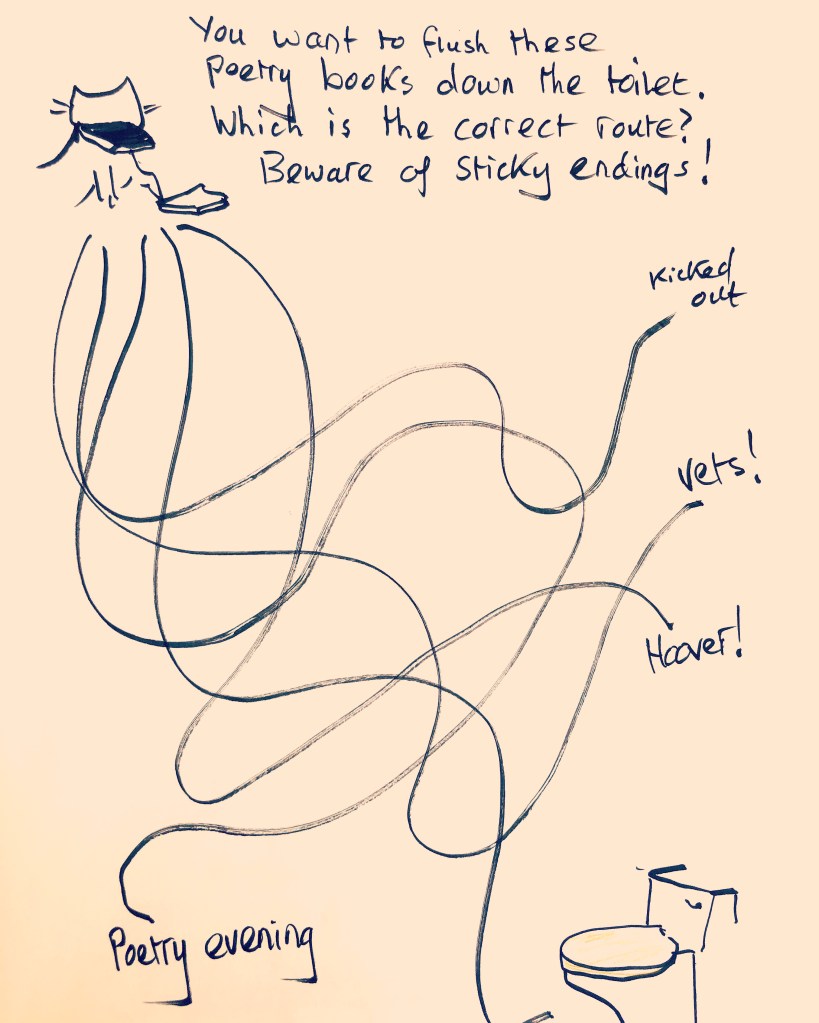 You want to flush these
poetry books down the toilet.
Which is the correct route?
Beware of sticky endings!
Kicked
out
Vets!
Hoover!
Poetry evening